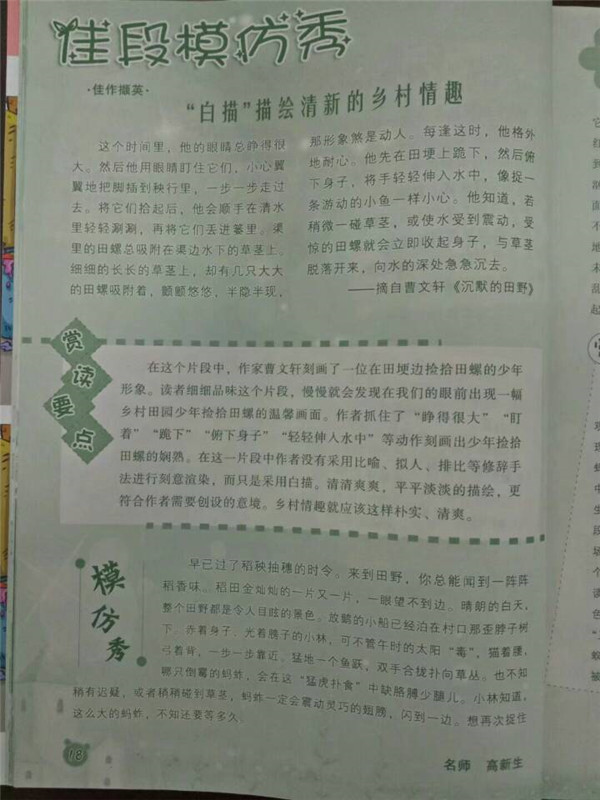 佳段模仿秀
·佳作撷英·
“白描”描绘清新的乡村情趣
这个时间里，他的眼睛总睁得很
大。然后他用眼睛盯住它们，小心翼
翼地把脚插到秧行里，一步一步走过
去。将它们拾起后，他会顺手在清水
里轻轻涮涮，再将它们丢进篓里。渠
里的田螺总吸附在渠边水下的草茎上。
细细的长长的草茎上，却有几只大大
的田螺吸附着，颤颤悠悠，半隐半现，
那形象煞是动人。每逢这时，他格外
地耐心。他先在田埂上跪下，然后俯
下身子，将手轻轻伸入水中，像捉一
条游动的小鱼一样小心。他知道，若
稍微一碰草茎，或使水受到震动，受
惊的田螺就会立即收起身子，与草茎
脱落开来，向水的深处急急沉去。
——摘自曹文轩《沉默的田野》
赏读要点
在这个片段中，作家曹文轩刻画了一位在田埂边捡拾田螺的少年
形象。读者细细品味这个片段，慢慢就会发现在我们的眼前出现一幅
乡村田园少年捡拾田螺的温馨画面。作者抓住了“睁得很大”“盯
着”“跪下”“俯下身子”“轻轻伸入水中”等动作刻画出少年捡拾
田螺的娴熟。在这一片段中作者没有采用比喻、拟人、排比等修辞手
法进行刻意渲染，而只是采用白描。清清爽爽，平平淡淡的描绘，更
符合作者需要创设的意境。乡村情趣就应该这样朴实、清爽。
模仿秀
早已过了稻秧抽穗的时令。来到田野，你总能闻到一阵阵
稻香味。稻田金灿灿的一片又一片，一眼望不到边。晴朗的白天，
整个田野都是令人目眩的景色。放鹅的小船已经泊在村口那歪脖子树
下。赤着身子、光着膀子的小林，可不管午时的太阳“毒”，猫着腰，
弓着背，一步一步靠近。猛地一个鱼跃，双手合拢扑向草丛。也不知
哪只倒霉的蚂蚱，会在这“猛虎扑食”中缺胳膊少腿儿。小林知道，
稍有迟疑，或者稍稍碰到草茎，蚂蚱一定会震动灵巧的翅膀，闪到一边。想再次捉住
这么大的蚂蚱，不知还要等多久。
18
名师 高新生